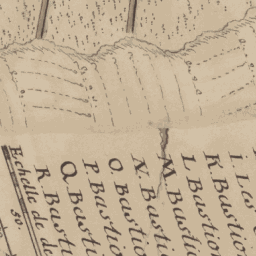 I. Les
K. Bastion
L. Bastion
M. Bastio
N. Bastio
O. Bastio
P. Bastion
Q. Bastio
R. Bastio
Echelle de de
50.